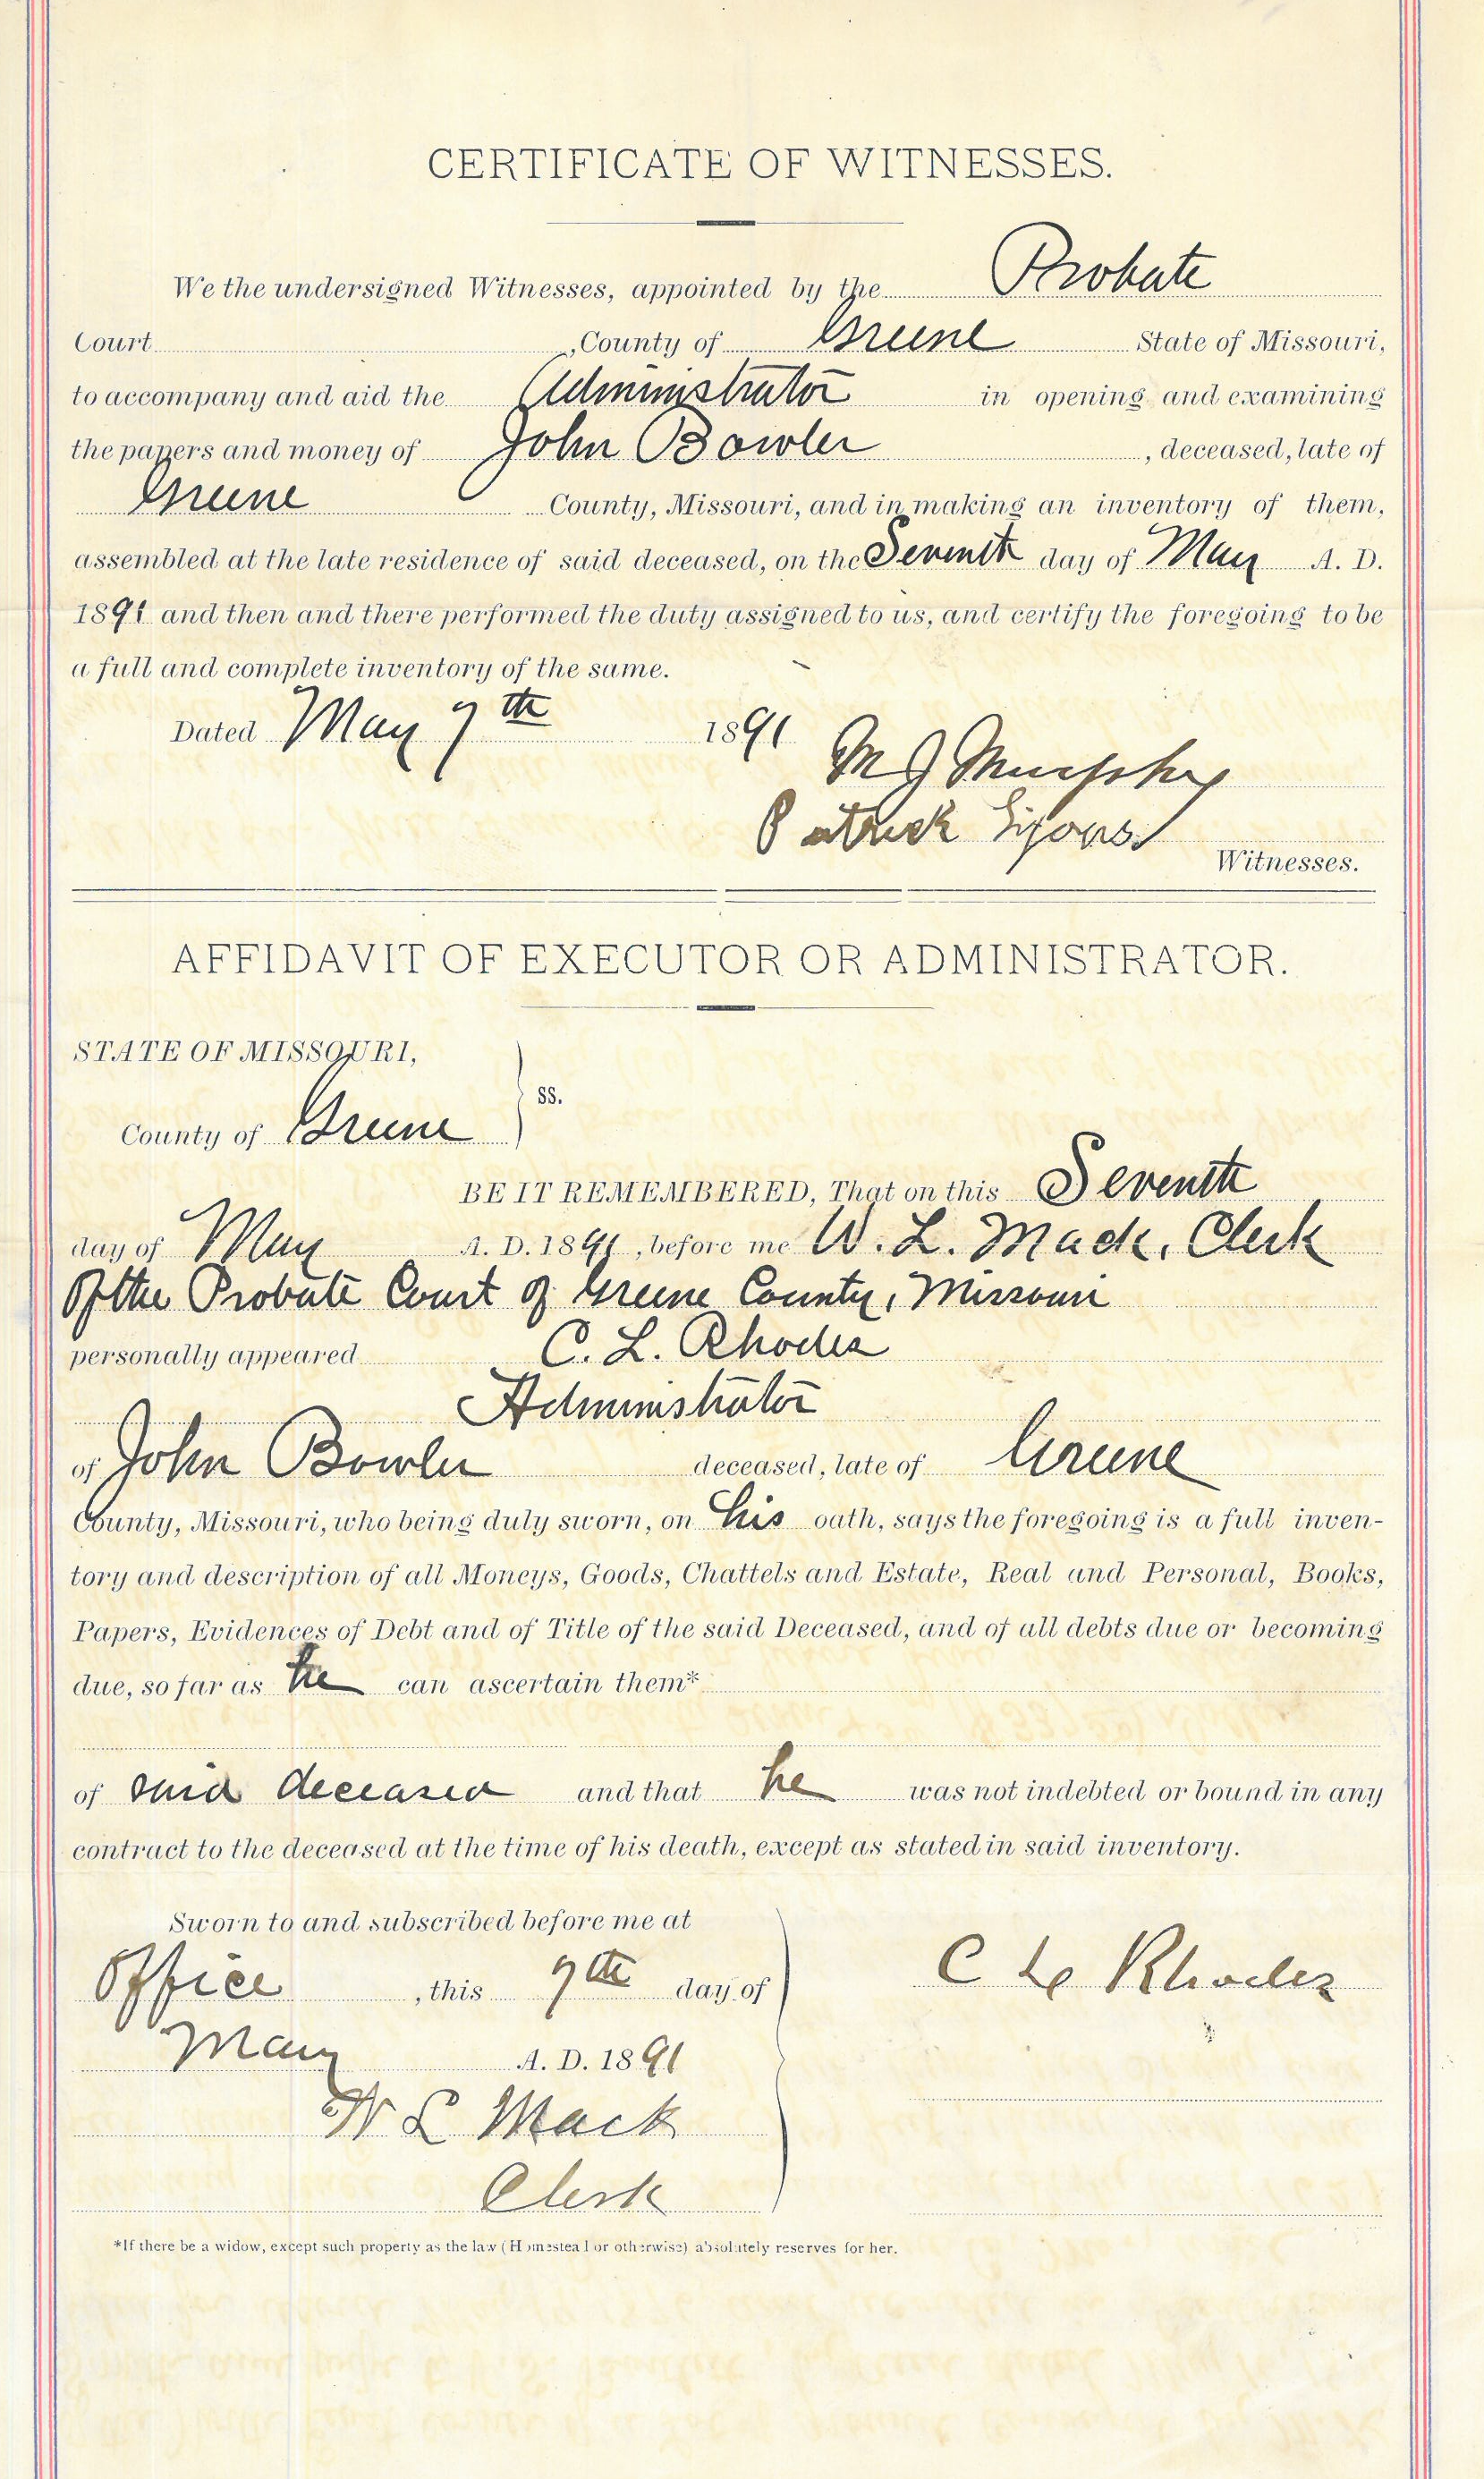 CERTIFICATE OF WITNESSES.
We the undersigned Witnesses, appointed by the Probate
Court , County of Greene State of Missouri,
to accompany and aid the Administrator in opening and examining
the papers and money of John Bowler , deceased, late of
Greene County, Missouri, and in making an inventory of them,
assembled at the late residence of said deceased, on the Seventh day of May A. D.
1891 and then and there performed the duty assigned to us, and certify the foregoing to be
a full and complete inventory of the same.
Dated May 7th 1891
M J Murphy
Patrick Lyons
Witnesses.
AFFIDAVIT OF EXECUTOR OR ADMINISTRATOR.
STATE OF MISSOURI,
ss.
County of Greene
BE IT REMEMBERED, That on this Seventh
day of May A. D. 1891, before me W. L. Mack, Clerk
Of the Probate Court of Greene County, Missouri
personally appeared C. L. Rhodes
Administrator
of John Bowler deceased, late of Greene
County, Missouri, who being duly sworn, on his oath, says the foregoing is a full inven-
tory and description of all Moneys, Goods, Chattels and Estate, Real and Personal, Books,
Papers, Evidences of Debt and of Title of the said Deceased, and of all debts due or becoming
due, so far as he can ascertain them*
of said deceased and that he was not indebted or bound in any
contract to the deceased at the time of his death, except as stated in said inventory.
Sworn to and subscribed before me at
Office , this 7th day of
C L Rhodes
May A. D. 1891
W L Mack
Clerk
*If there be a widow, except such property as the law (Homestead or otherwise) absolutely reserves for her.